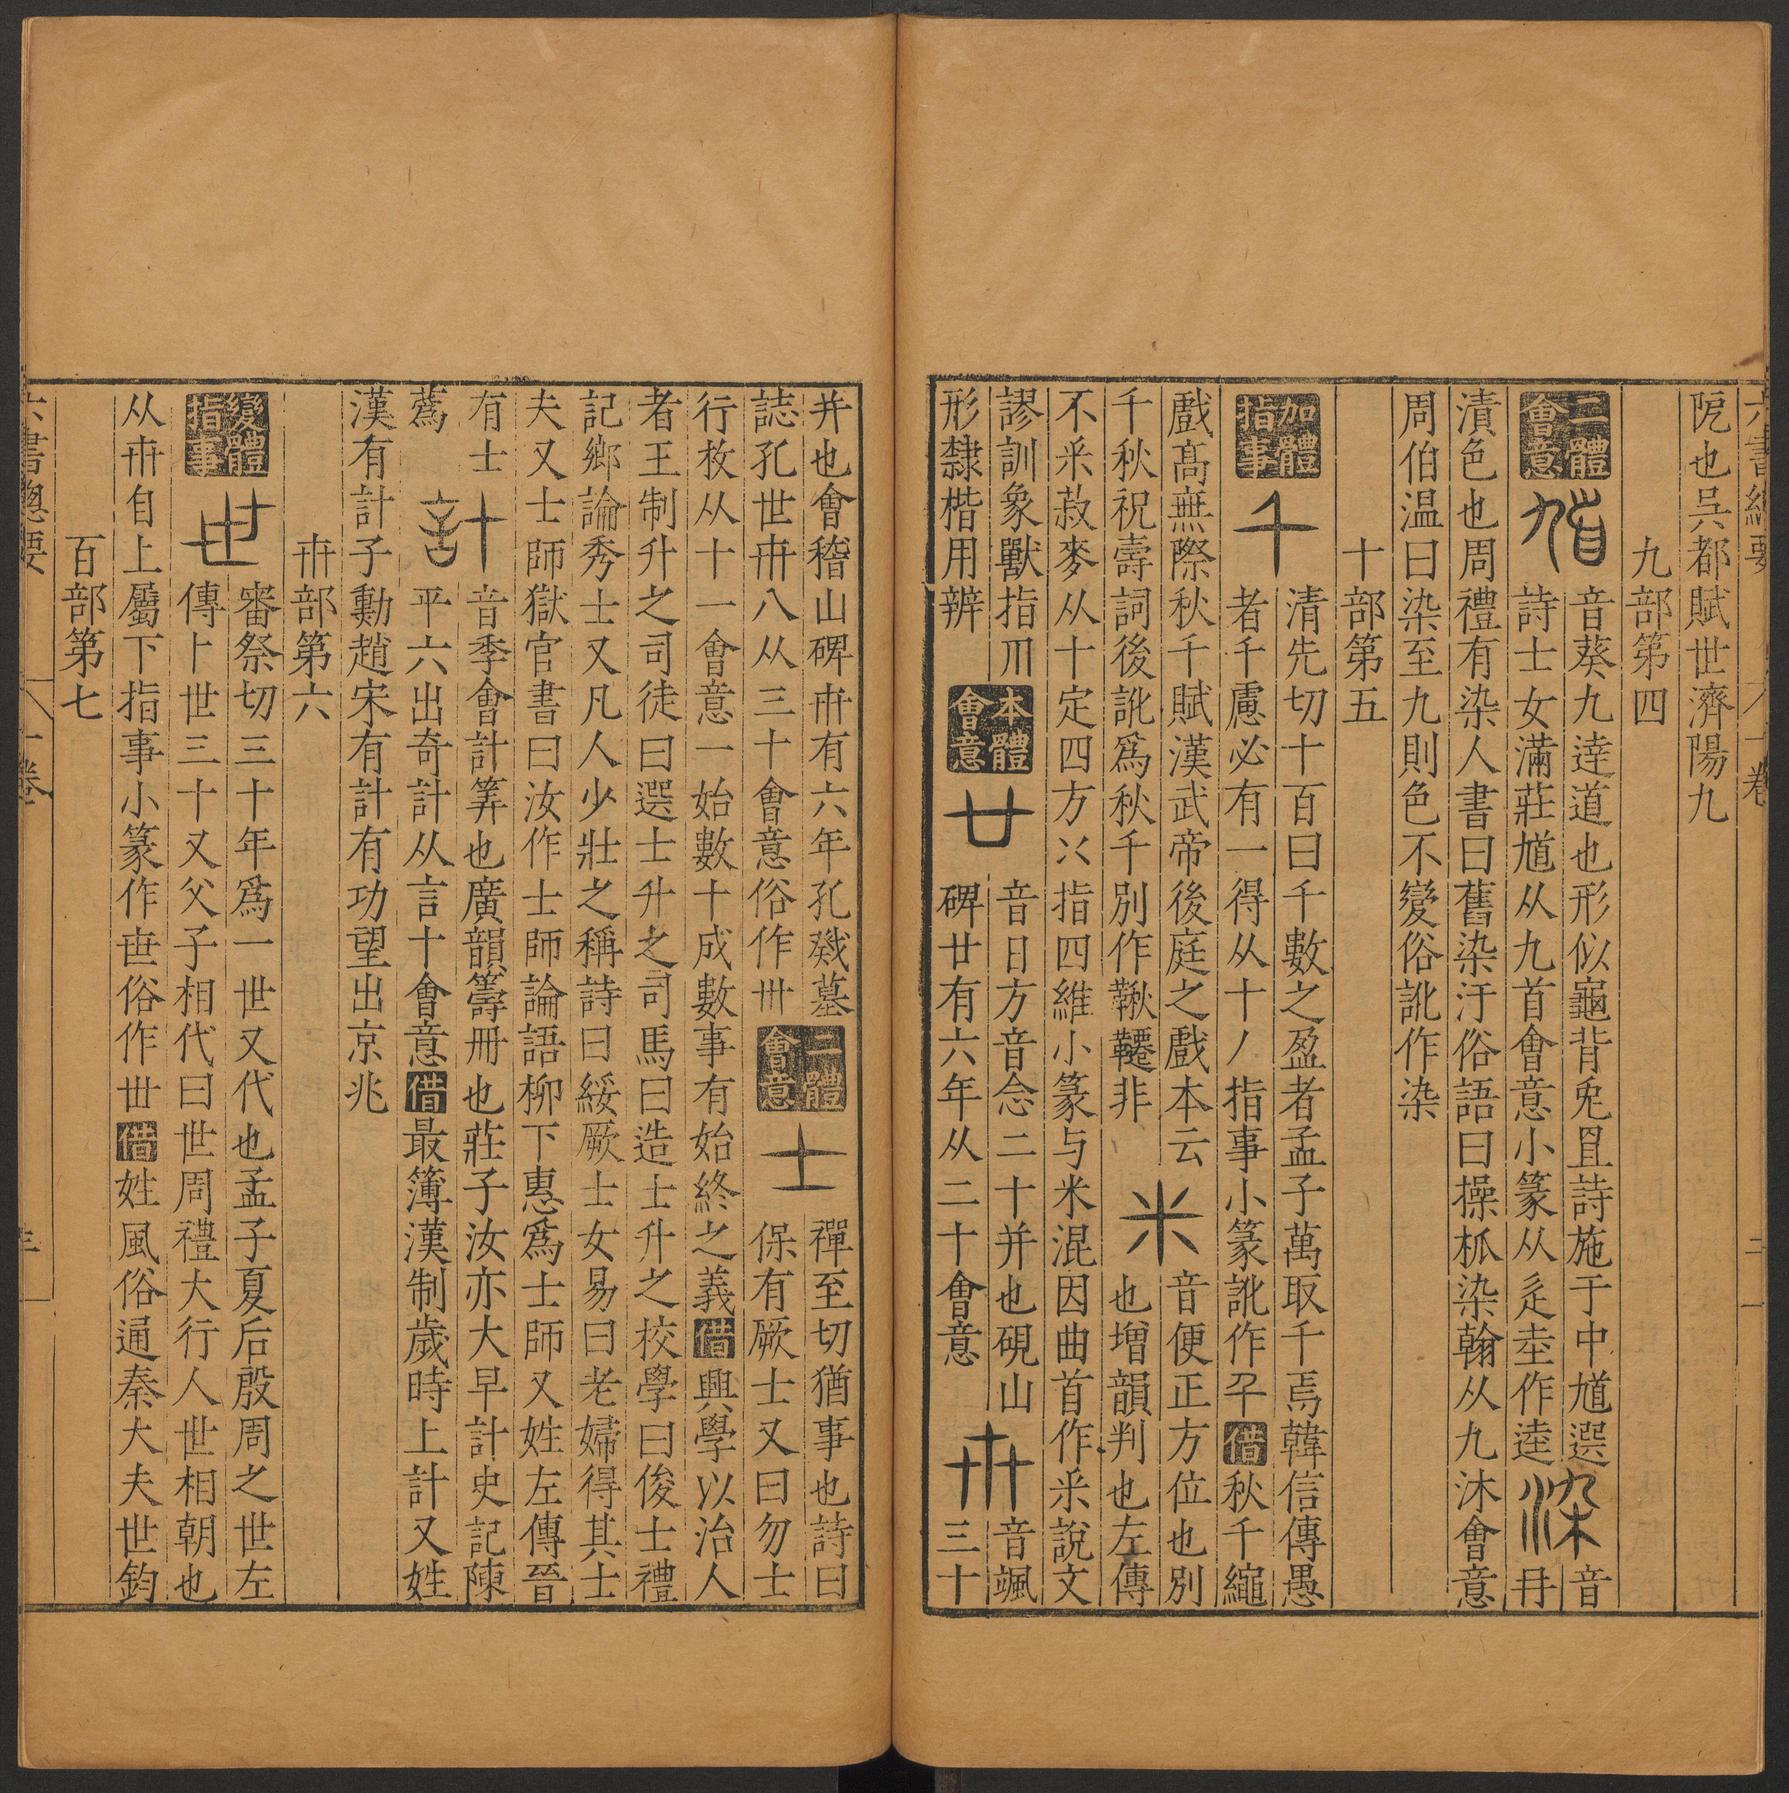 六書總要 卷 二
阸也吳都賦世濟陽九
九部第四
二體會意 馗 音葵九逵道也形似龜背兔罝詩施于中馗選
詩士女滿莊馗从九首會意小篆从辵坴作逵 染 音冄
漬色也周禮有染人書曰舊染汙俗語曰操柧染翰从九沐會意
周伯温曰染至九則色不變俗訛作染
十部第五
加體指事 千 清先切十百曰千數之盈者孟子萬取千焉韓信傳愚
者千慮必有一得从十丿指事小篆訛作 借秋千繩
戲髙無際秋千賦漢武帝後庭之戲本云
千秋祝壽詞後訛爲秋千別作鞦韆非 米 音便正方位也別
也增韻判也左傳
不釆菽麥从十定四方 指四維小篆与米混因曲首作釆說文
謬訓象獸指爪
形隸楷用辨 本體會意 廿 音日方音念二十并也硯山
碑廿有六年从二十會意 卅 音颯三十
并也會稽山碑卅有六年孔戣墓
誌孔世卅八从三十會意俗作卅 二體會意 士 禪至切猶事也詩曰
保有厥士又曰勿士
行枚从十一會意一始數十成數事有始終之義借興學以治人
者王制升之司徒曰選士升之司馬曰造士升之校學曰俊士禮
記鄉論秀士又凡人少壯之稱詩曰綏厥士女易曰老婦得其士
夫又士師獄官書曰汝作士師論語柳下惠爲士師又姓左傳晉
有士蔿 計 音季會計筭也廣韻籌冊也莊子汝亦大早計史記陳
平六出奇計从言十會意借最簿漢制歲時上計又姓
漢有計子勳趙宋有計有功望出京兆
卅部第六
變體指事 世 審祭切三十年爲一世又代也孟子夏后殷周之世左
傳卜世三十又父子相代曰世周禮大行人世相朝也
从卅自上屬下指事小篆作世俗作卋借姓風俗通秦大夫世鈞
百部第七
六書總要 卷 三